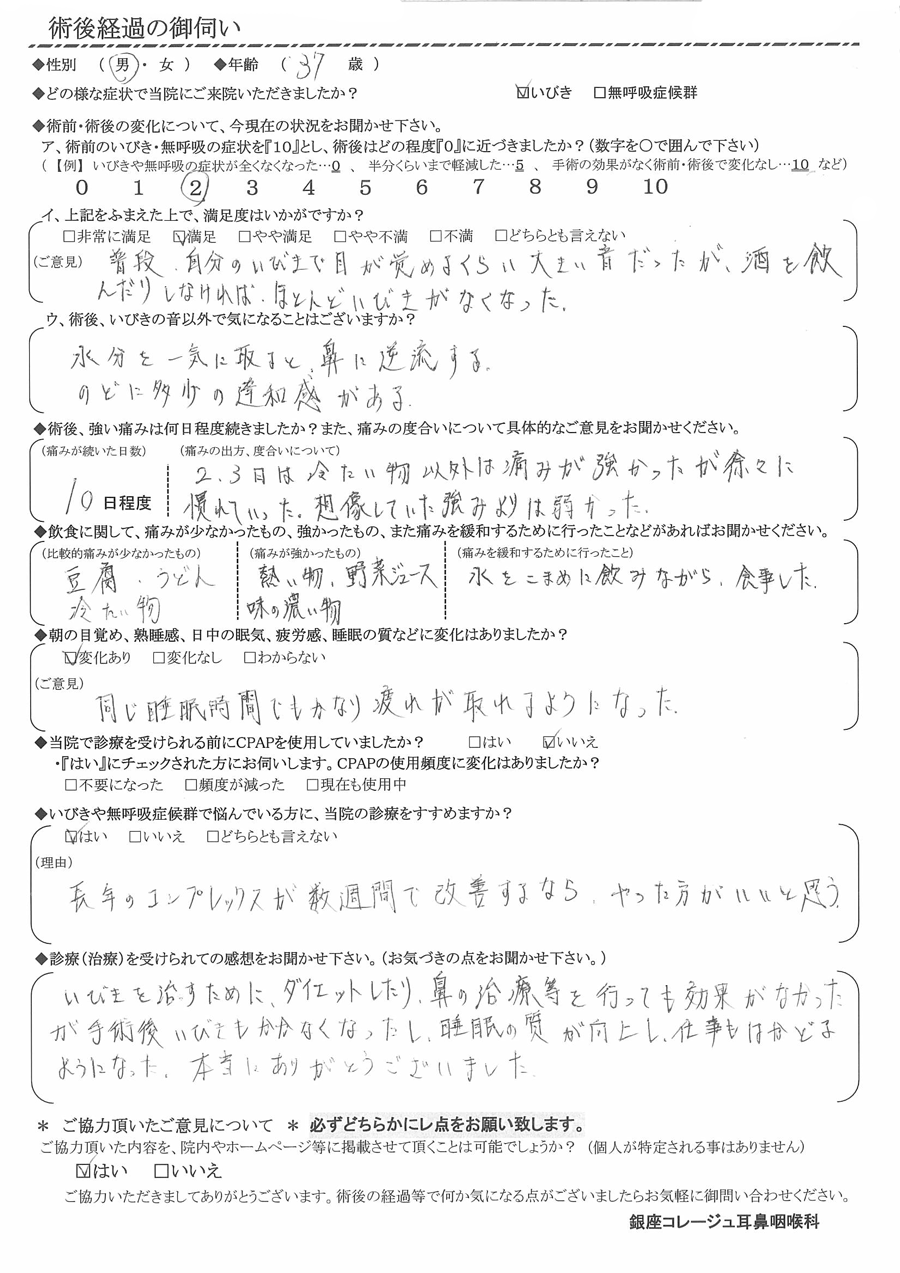 術後経過の御伺い
◆性別 (男・女) ◆年齢 (37 歳)
◆どの様な症状で当院にご来院いただきましたか? ☑いびき □無呼吸症候群
◆術前・術後の変化について、今現在の状況をお聞かせ下さい。
ア、術前のいびき・無呼吸の症状を『10』とし、術後はどの程度『0』に近づきましたか?(数字を○で囲んで下さい)
(【例】いびきや無呼吸の症状が全くなくなった…0 、 半分くらいまで軽減した…5 、 手術の効果がなく術前・術後で変化なし…10 など)
0 1 2 3 4 5 6 7 8 9 10
イ、上記をふまえた上で、満足度はいかがですか?
□非常に満足 ☑満足 □やや満足 □やや不満 □不満 □どちらとも言えない
(ご意見) 普段、自分のいびきで目が覚めるくらい大きい音だったが、酒を飲
んだりしなければ、ほとんどいびきがなくなった。
ウ、術後、いびきの音以外で気になることはございますか?
水分を一気に取ると、鼻に逆流する。
のどに多少の違和感がある。
◆術後、強い痛みは何日程度続きましたか?また、痛みの度合いについて具体的なご意見をお聞かせください。
(痛みが続いた日数) (痛みの出方、度合いについて)
2.3日は冷たい物以外は痛みが強かったが徐々に
10 日程度 慣れていった。想像していた強みよりは弱かった。
◆飲食に関して、痛みが少なかったもの、強かったもの、また痛みを緩和するために行ったことなどがあればお聞かせください。
(比較的痛みが少なかったもの) (痛みが強かったもの) (痛みを緩和するために行ったこと)
豆腐、うどん 熱い物、野菜ジュース 水をこまめに飲みながら、食事した。
冷たい物 味の濃い物
◆朝の目覚め、熟睡感、日中の眠気、疲労感、睡眠の質などに変化はありましたか?
☑変化あり □変化なし □わからない
(ご意見)
同じ睡眠時間でもかなり疲れが取れるようになった。
◆当院で診療を受けられる前にCPAPを使用していましたか? □はい ☑いいえ
・『はい』にチェックされた方にお伺いします。CPAPの使用頻度に変化はありましたか?
□不要になった □頻度が減った □現在も使用中
◆いびきや無呼吸症候群で悩んでいる方に、当院の診療をすすめますか?
☑はい □いいえ □どちらとも言えない
(理由)
長年のコンプレックスが数週間で改善するなら、やった方がいいと思う。
◆診療(治療)を受けられての感想をお聞かせ下さい。(お気づきの点をお聞かせ下さい。)
いびきを治すために、ダイエットしたり、鼻の治療等を行っても効果がなかった
が手術後いびきもかかなくなったし、睡眠の質が向上し、仕事もはかどる
ようになった。本当にありがとうございました。
＊ ご協力頂いたご意見について ＊ 必ずどちらかにレ点をお願い致します。
ご協力頂いた内容を、院内やホームページ等に掲載させて頂くことは可能でしょうか? (個人が特定される事はありません)
☑はい □いいえ
ご協力いただきましてありがとうございます。術後の経過等で何か気になる点がございましたらお気軽に御問い合わせください。
銀座コレージュ耳鼻咽喉科